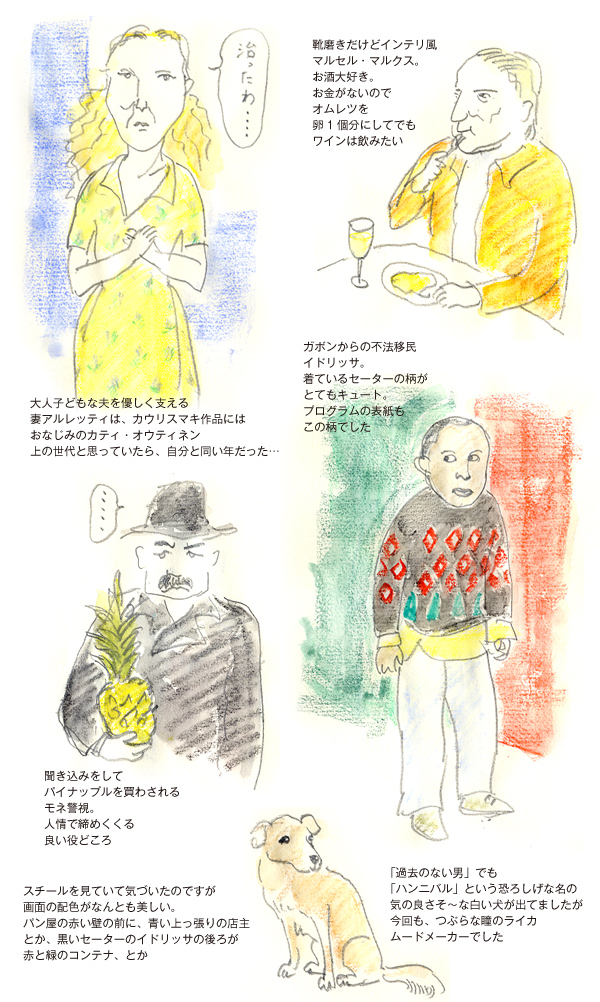 治ったわ‥‥
靴磨きだけどインテリ風
マルセル・マルクス。
お酒大好き。
お金がないので
オムレツを
卵1個分にしてでも
ワインは飲みたい
大人子どもな夫を優しく支える
妻アルレッティは、カウリスマキ作品には
おなじみのカティ・オウティネン
上の世代と思っていたら、自分と同い年だった…
ガボンからの不法移民
イドリッサ。
着ているセーターの柄が
とてもキュート。
プログラムの表紙も
この柄でした
‥‥
聞き込みをして
パイナップルを買わされる
モネ警視。
人情で締めくくる
良い役どころ
スチールを見ていて気づいたのですが
画面の配色がなんとも美しい。
パン屋の赤い壁の前に、青い上っ張りの店主
とか、黒いセーターのイドリッサの後ろが
赤と緑のコンテナ、とか
「過去のない男」でも
「ハンニバル」という恐ろしげな名の
気の良さそ～な白い犬が出てましたが
今回も、つぶらな瞳のライカ
ムードメーカーでした